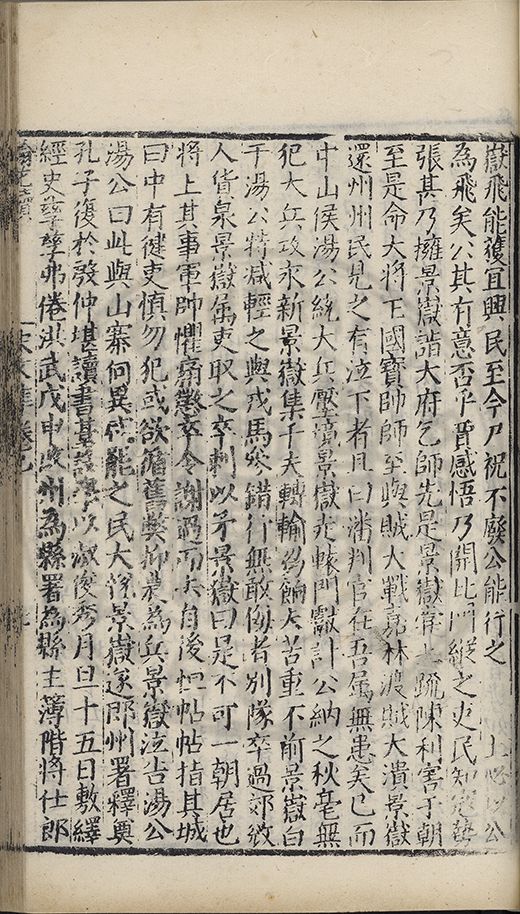 嶽飛能獲宜興民至今尸祝不廢公能行之上必以公
為飛矣公其有意否乎賈感悟乃開北門縱之吏民知
張甚乃擁景嶽詣大府乞師先是景嶽嘗上疏陳利害于朝
至是命大將王國寶帥師至與賊大戰嘉林渡賊大潰景嶽
還州州民見之有泣下者且曰潘判官在吾屬無患矣已而
中山侯湯公統大兵壓境景嶽走轅門獻計公納之秋毫無
犯大兵攻永新景嶽集千夫轉輸芻餉夫苦重不前景嶽白
于湯公特減輕之與戎馬參錯行無敢侮者別隊卒過郊效
人貨泉景嶽屬吏取之卒刺以矛景嶽曰是不可一朝居也
將上其事軍帥懼痛懲卒令謝過而去自後怗怗帖指其城
曰中有健吏慎勿犯或欲循舊獎抑農為兵景嶽泣告湯公
湯公曰此與山寨何異代能之民大悅景嶽遂即州署釋奠
孔子復於發仲堪讀書基設學以淑俊秀月旦十五日敷繹
經史孳孳弗倦洪武戊申改州為縣署為縣主簿階將仕郎